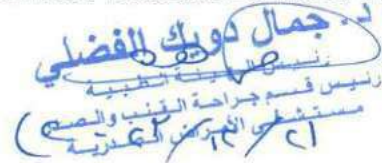 د. جمال دويك الفضلي
رئيس الهيئة الطبية
رئيس قسم جراحة القلب والصدر
مستشفى الأمراض الصدرية